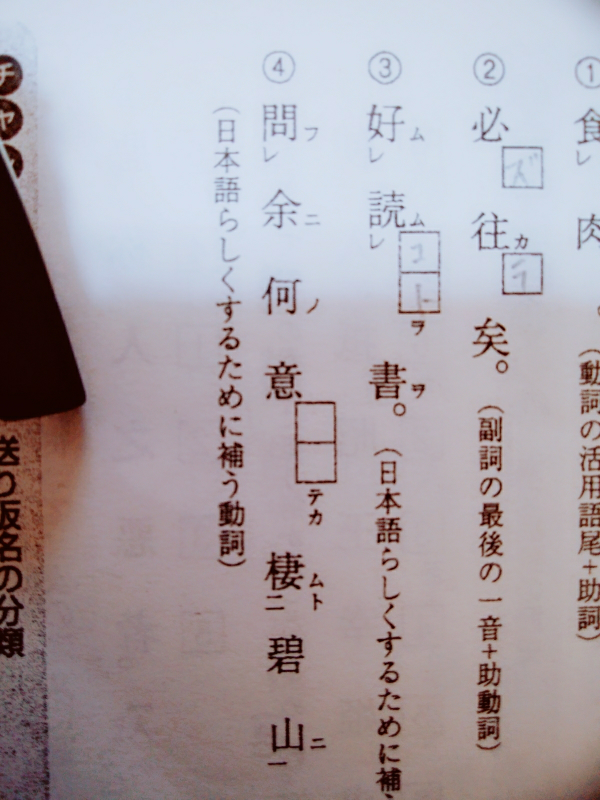 ①食レ肉。(動詞の活用語尾+助詞)
②必ズ往カ矣。(副詞の最後の一音+助動詞)
③好ムレ読ムコトヲレ書ヲ。(日本語らしくするために補
④問フレ余ニ何ノ意テカ棲ムト二碧山ニ一
(日本語らしくするために補う動詞)
チャ
送り仮名の分類